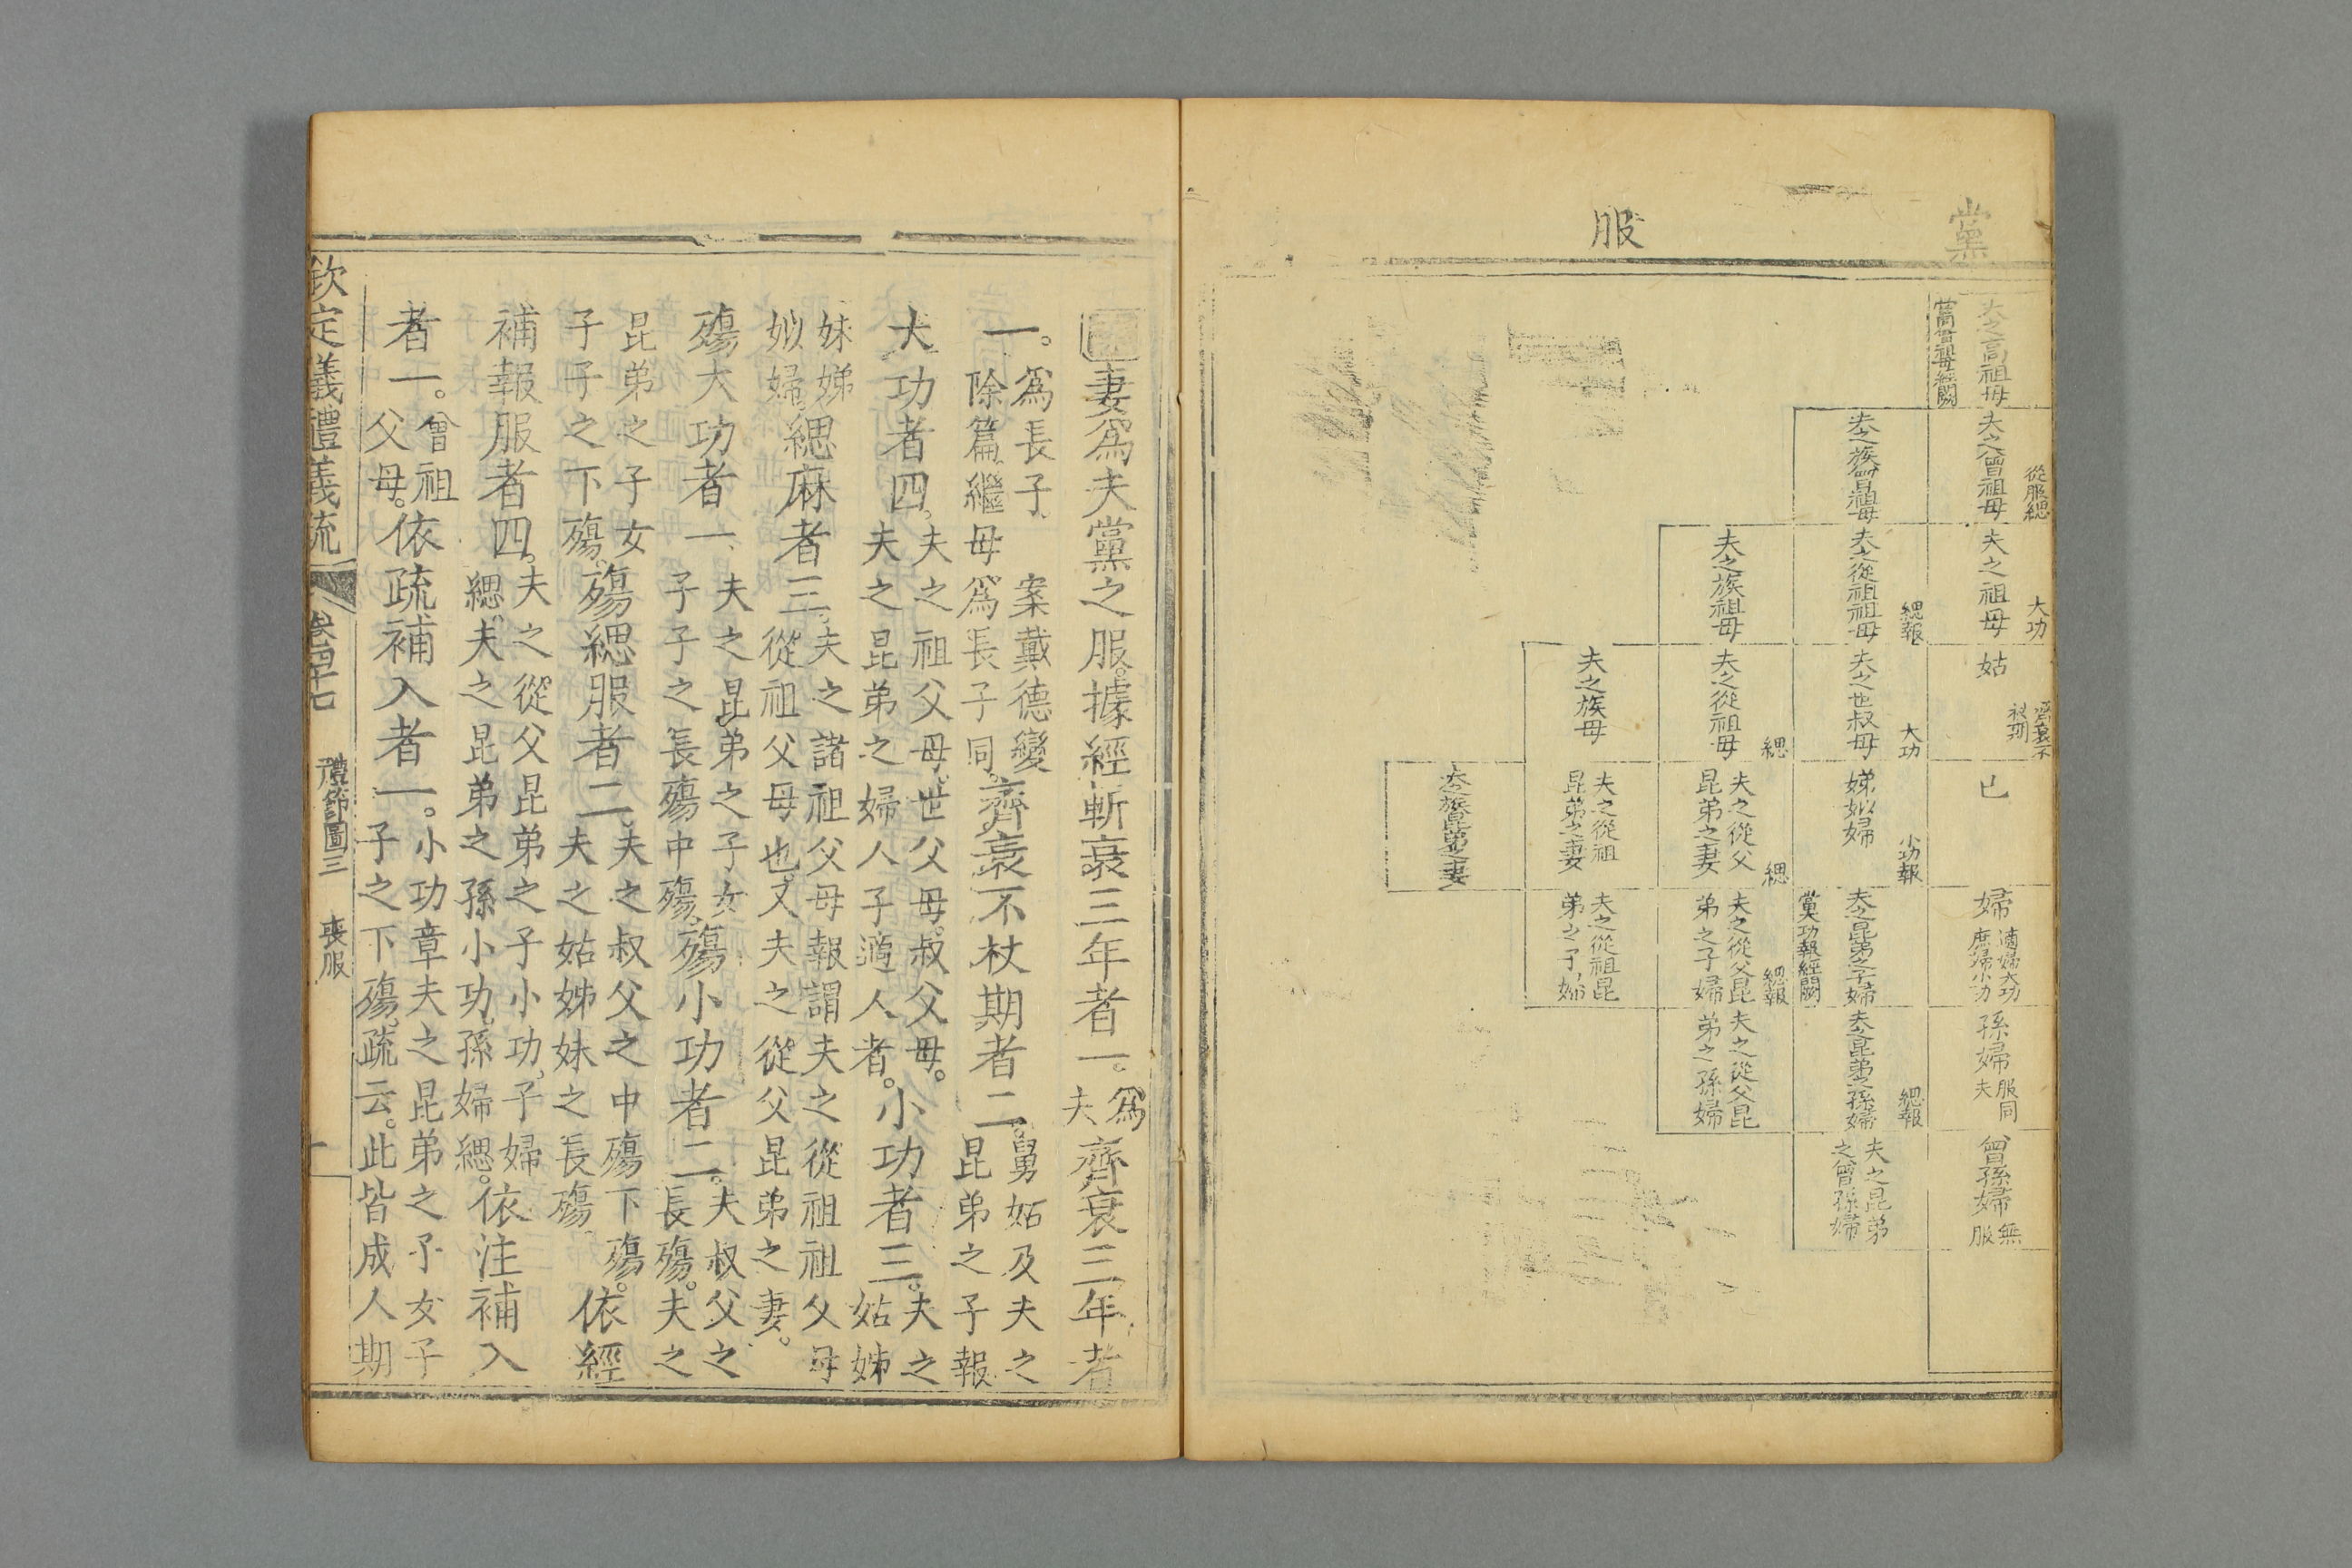 黨
服
夫之高祖母
當曾祖母經闕
夫之曾祖母
從服緦
夫之祖母
大功
姑
齊衰不
杖期
己
婦
適婦大功
庶婦小功
孫婦
服同
夫
曾孫婦
無
服
夫之族曾祖母
夫之從祖祖母
緦報
夫之世叔母
大功
娣姒婦
小功報
夫之昆弟之子婦
當大功報經闕
夫之昆弟之孫婦
緦報
夫之昆弟
之曾孫婦
夫之族祖母
夫之從祖母
緦
夫之從父
昆弟之妻
緦
夫之從父昆
弟之子婦
緦報
夫之從父昆
弟之孫婦
夫之族母
夫之從祖
昆弟之妻
夫之從祖昆
弟之子婦
夫之族昆弟之妻
圖妻為夫黨之服。據經斬衰三年者一。為夫齊衰三年者
一。為長子 案戴德變除篇、繼母為長子同。齊衰不杖期者二。舅姑及夫之昆弟之子報
大功者四。夫之祖父母。世父母。叔父母。夫之昆弟之婦人子適人者。小功者三。夫之姑姊
妹娣姒婦緦麻者三。夫之諸祖父母報謂夫之從祖祖父母從祖父母也。又夫之從父昆弟之妻。
殤大功者一、夫之昆弟之子女子子之長殤中殤、殤小功者二。夫叔父之長殤。夫之
昆弟之子女子子之下殤。殤緦服者二。夫之叔父之中殤下殤。夫之姑姊妹之長殤依經
補報服者四。夫之從父昆弟之子小功、子婦緦。夫之昆弟之孫小功、孫婦緦。依注補入
者一。曾祖父母。依疏補入者一。小功章夫之昆弟之子女子子之下殤。疏云。此皆成人期
欽定儀禮義疏 卷四十七 禮節圖三 喪服